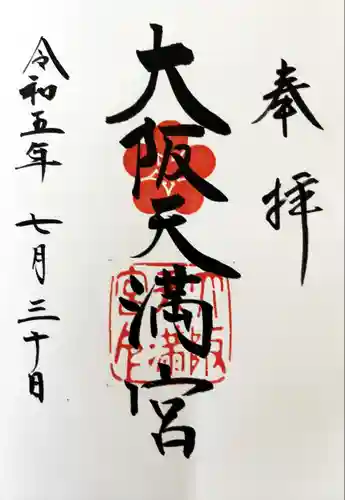 奉拝
大阪天満宮
令和五年 七月三十日